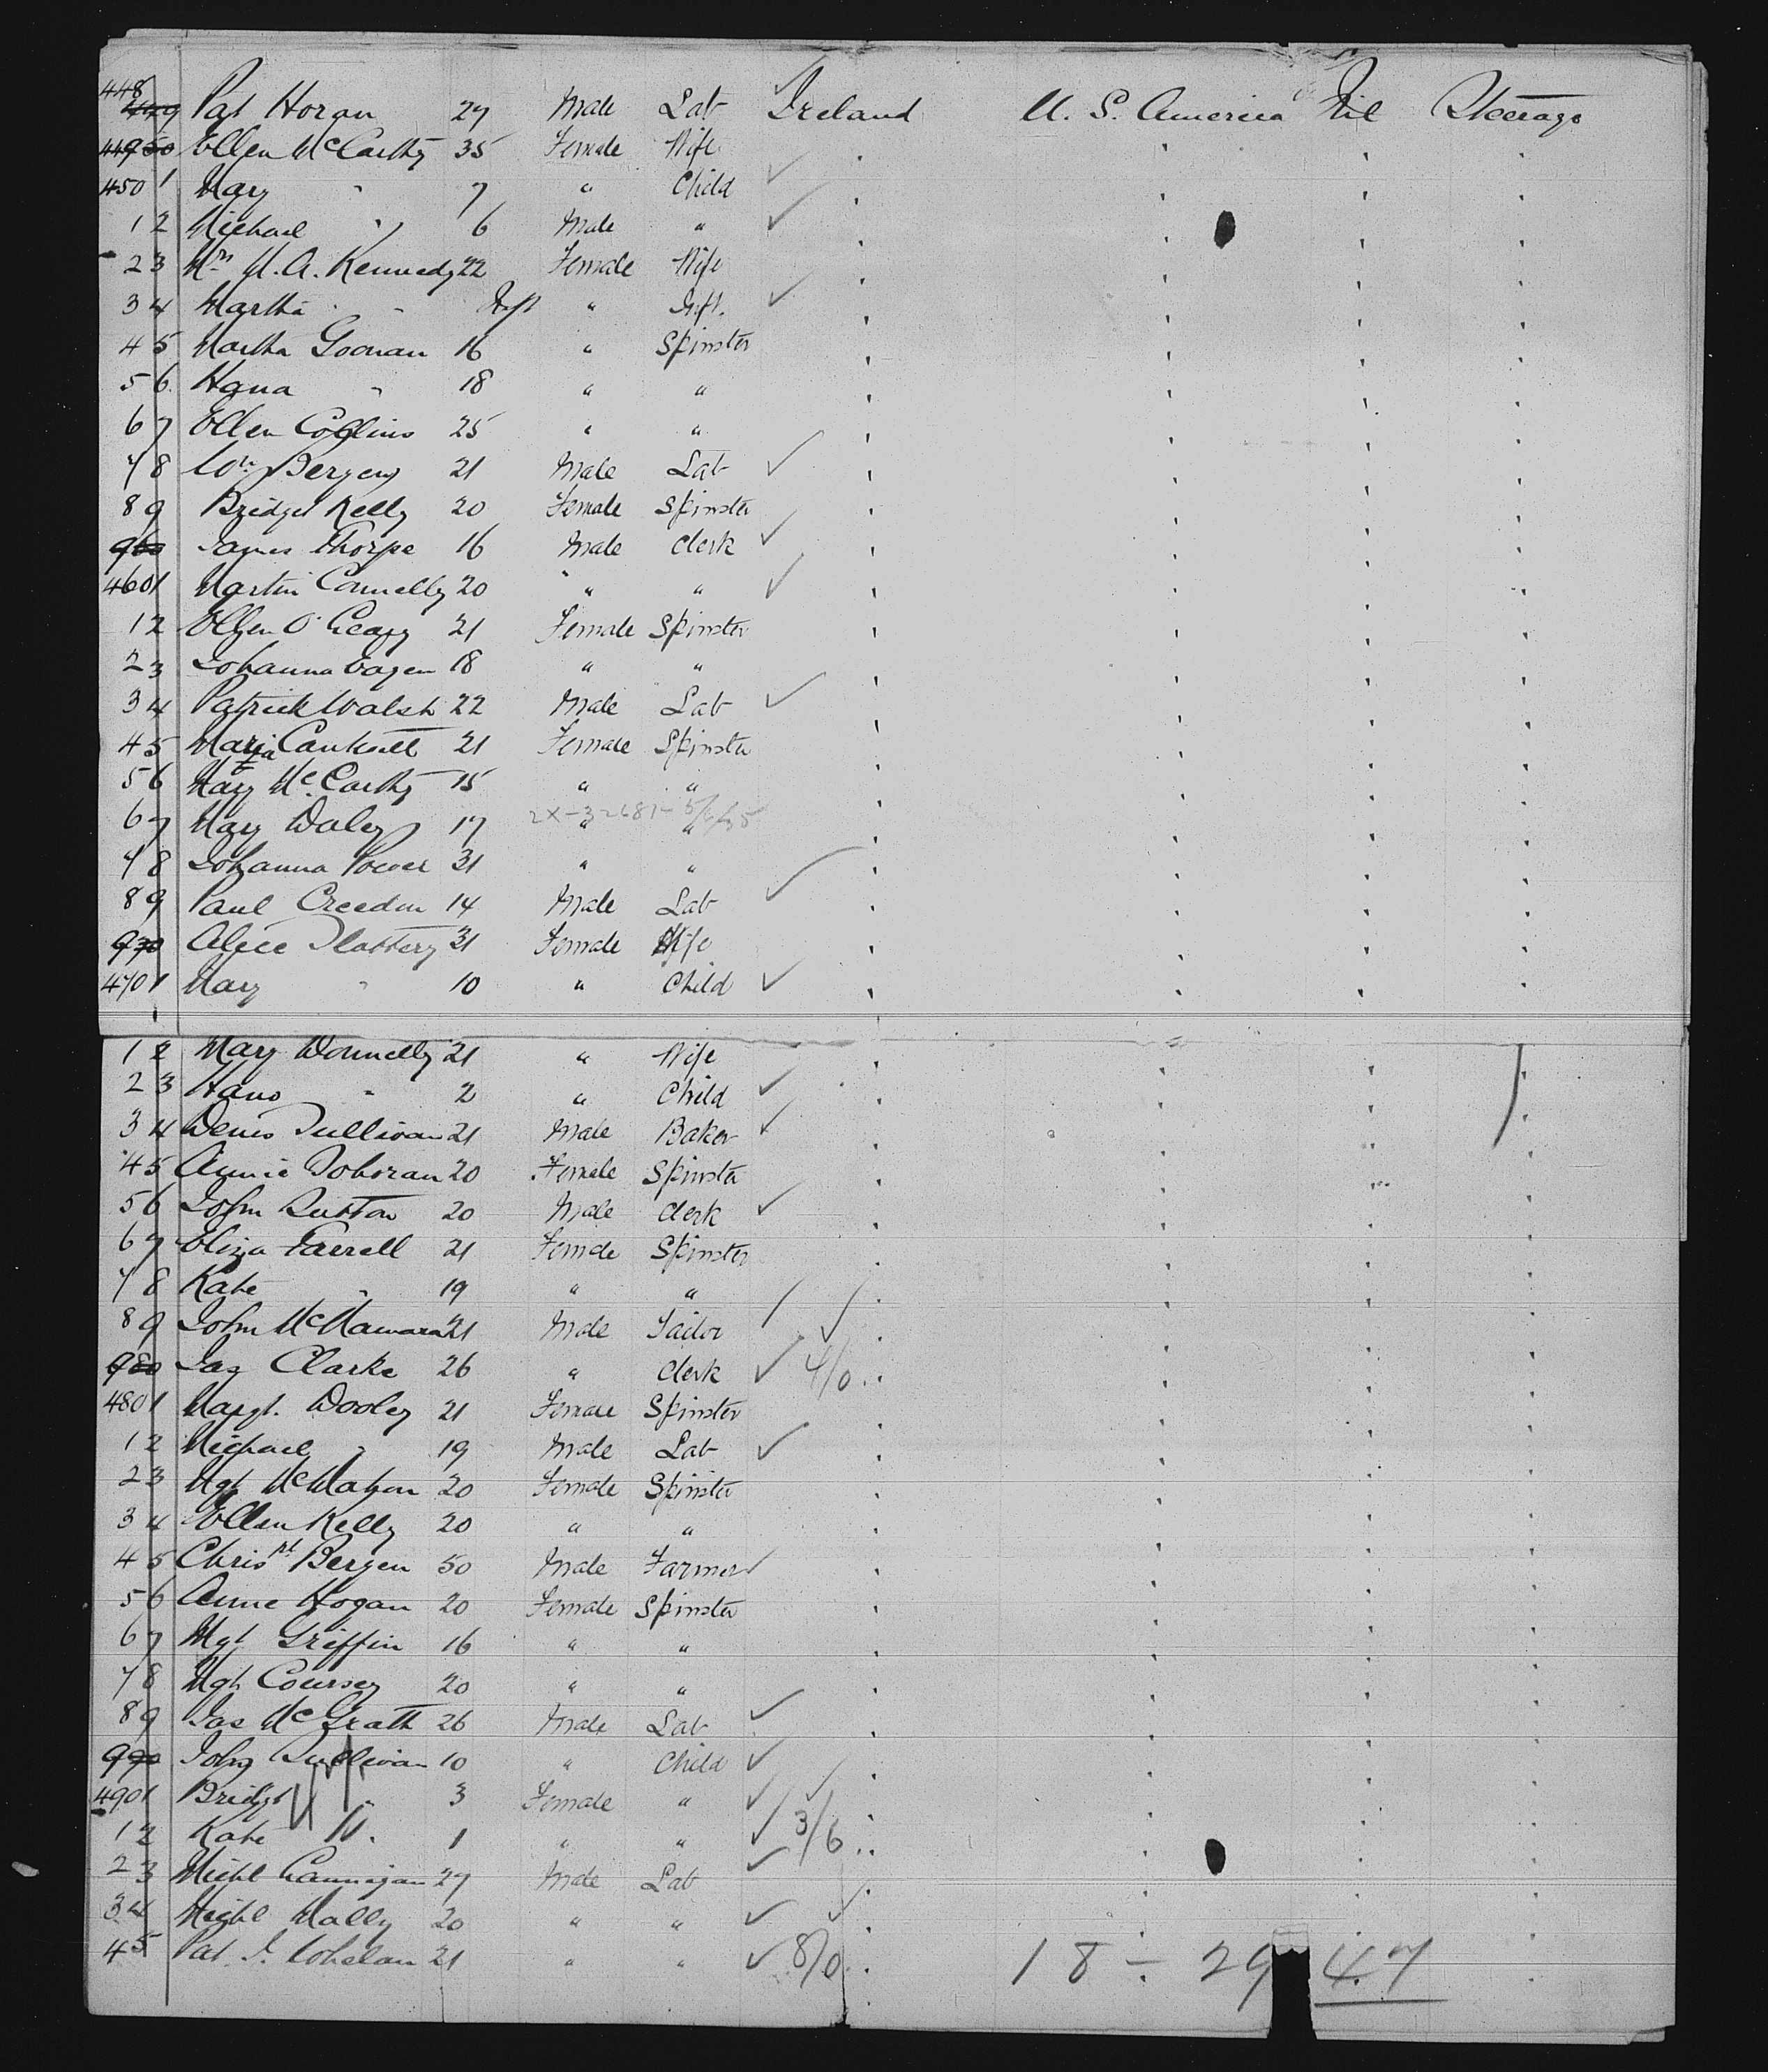 448
449 Pat Horan 27 Male Lab Ireland U. S. America Nil Steerage
449 50 Ellen McCarthy 35 Female Wife
450 1 Mary " 7 " Child
1 2 Michael " 6 Male "
2 3 Mrs M. A. Kennedy 22 Female Wife
3 4 Martha " " Inft " Inft.
4 5 Martha Goonan 16 " Spinster
5 6 Hana " 18 " "
6 7 Ellen Collins 25 " "
7 8 Wm Bergen 21 Male Lab
8 9 Bridget Kelly 20 Female Spinster
9 60 James Thorpe 16 Male Clerk
460 1 Martin Connelly 20 " "
1 2 Ellen O'Leary 21 Female Spinster
2 3 Johanna 18 " "
3 4 Patrick Walsh 22 Male Lab
4 5 Maria Cantwell 21 Female Spinster
5 6 Mary McCarthy 15 " "
6 7 Mary Daley 17 " "
2X-32681-5/6/35
7 8 Johanna Power 31 " "
8 9 Paul Creedon 14 Male Lab
9 70 Alice Slattery 31 Female Wife
470 1 Mary " 10 " Child
1 2 Mary Donnelly 21 " Wife
2 3 Hano " 2 " Child
3 4 Denis Sullivan 21 Male Baker
4 5 Annie 20 Female Spinster
5 6 John Sutton 20 Male Clerk
6 7 Eliza Farrell 21 Female Spinster
7 8 Kate " 19 " "
8 9 John McNamara 21 Male Tailor
9 80 Jas Clarke 26 " Clerk 4/0
480 1 Margt. Dooley 21 Female Spinster
1 2 Michael " 19 Male Lab
2 3 Mgt McMahon 20 Female Spinster
3 4 Ellen Kelly 20 " "
4 5 Christ Bergen 50 Male Farmer
5 6 Anne Hogan 20 Female Spinster
6 7 Mgt Griffin 16 " "
7 8 Mgt Coursey 20 " "
8 9 Jas McGrath 26 Male Lab
9 90 John Sullivan 10 " Child
490 1 Bridgt " 3 Female "
1 2 Kate " 1 " " 3/6
2 3 Michl Lannigan 27 Male Lab
3 4 Michl Mally 20 " "
4 5 Pat. J. Whelan 21 " " 8/0
18 - 29 47